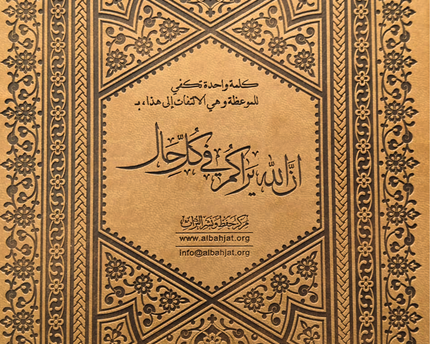 كلمة واحدة تكفي
للموعظة وهي الالتفات إلى هذا، بـ
انّ الله يراكم في كلّ حال
مركز حفظ ونشر التراث
www.albahjat.org
info@albahjat.org